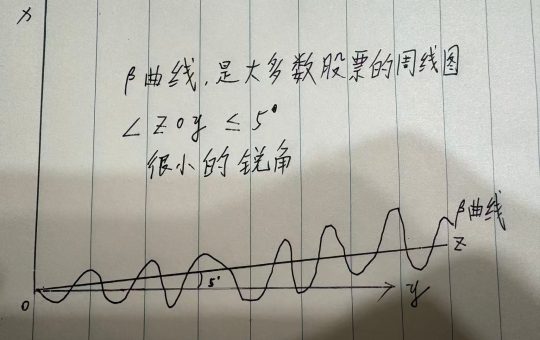 x
β曲线,是大多数股票的周线图
∠zoy ≤ 5°
很小的锐角
β曲线
z
5°
o
y